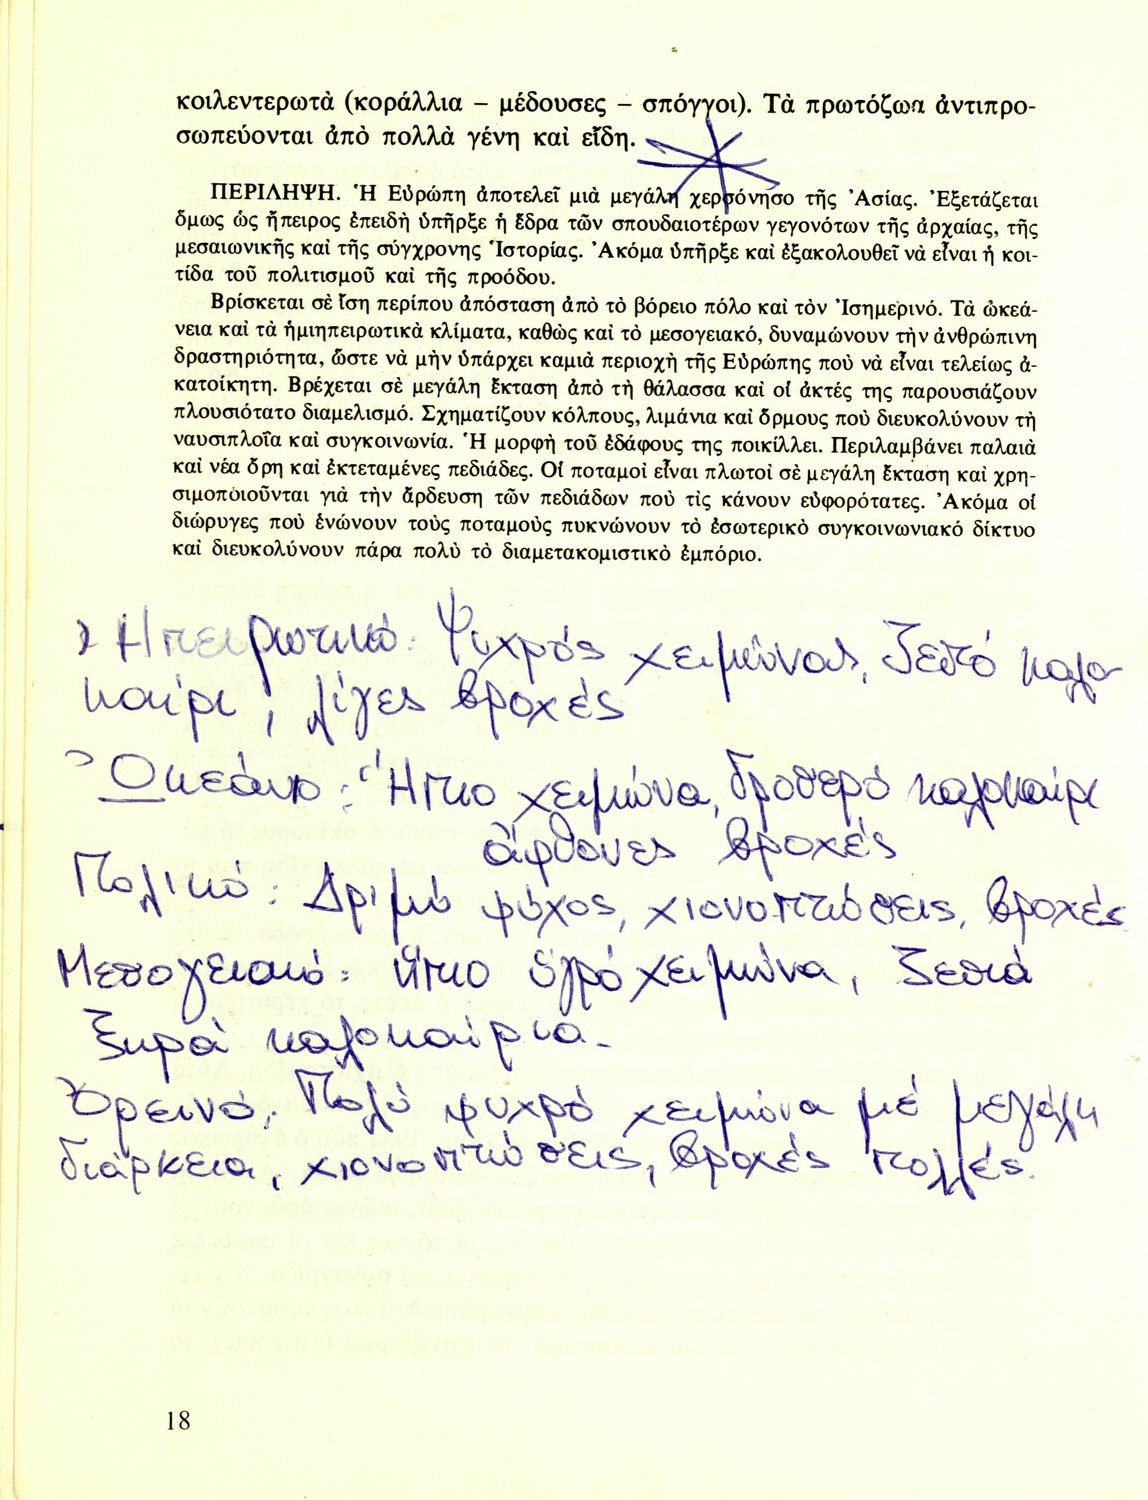 κοιλεντερωτὰ (κοράλλια – μέδουσες – σπόγγοι). Τὰ πρωτόζωα ἀντιπρο-
σωπεύονται ἀπὸ πολλὰ γένη καὶ εἴδη.
ΠΕΡΙΛΗΨΗ. Ἡ Εὐρώπη ἀποτελεῖ μιὰ μεγάλη χερσόνησο τῆς Ἀσίας. Ἐξετάζεται
ὅμως ὡς ἤπειρος ἐπειδὴ ὑπῆρξε ἡ ἕδρα τῶν σπουδαιοτέρων γεγονότων τῆς ἀρχαίας, τῆς
μεσαιωνικῆς καὶ τῆς σύγχρονης Ἱστορίας. Ἀκόμα ὑπῆρξε καὶ ἐξακολουθεῖ νὰ εἶναι ἡ κοι-
τίδα τοῦ πολιτισμοῦ καὶ τῆς προόδου.
Βρίσκεται σὲ ἴση περίπου ἀπόσταση ἀπὸ τὸ βόρειο πόλο καὶ τὸν Ἰσημερινό. Τὰ ὠκεά-
νεια καὶ τὰ ἡμιηπειρωτικὰ κλίματα, καθὼς καὶ τὸ μεσογειακό, δυναμώνουν τὴν ἀνθρώπινη
δραστηριότητα, ὥστε νὰ μὴν ὑπάρχει καμιὰ περιοχὴ τῆς Εὐρώπης ποὺ νὰ εἶναι τελείως ἀ-
κατοίκητη. Βρέχεται σὲ μεγάλη ἔκταση ἀπὸ τὴ θάλασσα καὶ οἱ ἀκτές της παρουσιάζουν
πλουσιότατο διαμελισμό. Σχηματίζουν κόλπους, λιμάνια καὶ ὅρμους ποὺ διευκολύνουν τὴ
ναυσιπλοΐα καὶ συγκοινωνία. Ἡ μορφὴ τοῦ ἐδάφους της ποικίλλει. Περιλαμβάνει παλαιὰ
καὶ νέα ὄρη καὶ ἐκτεταμένες πεδιάδες. Οἱ ποταμοὶ εἶναι πλωτοὶ σὲ μεγάλη ἔκταση καὶ χρη-
σιμοποιοῦνται γιὰ τὴν ἄρδευση τῶν πεδιάδων ποὺ τὶς κάνουν εὐφορότατες. Ἀκόμα οἱ
διώρυγες ποὺ ἑνώνουν τοὺς ποταμοὺς πυκνώνουν τὸ ἐσωτερικὸ συγκοινωνιακό δίκτυο
καὶ διευκολύνουν πάρα πολὺ τὸ διαμετακομιστικὸ ἐμπόριο.
Ἠπειρωτικό: Ψυχρός χειμώνας, ζεστό καλο-
καίρι, λίγες βροχές
Ὠκεάνιο: Ἤπιο χειμώνα, δροσερό καλοκαίρι
ἄφθονες βροχές
Πολικό: Δριμύ ψύχος, χιονοπτώσεις, βροχές
Μεσογειακό: ἤπιο ὑγρό χειμώνα, ζεστά
ξηρά καλοκαίρια.
Ὀρεινό: Πολύ ψυχρό χειμώνα μέ μεγάλη
διάρκεια, χιονοπτώσεις, βροχές πολλές.
18